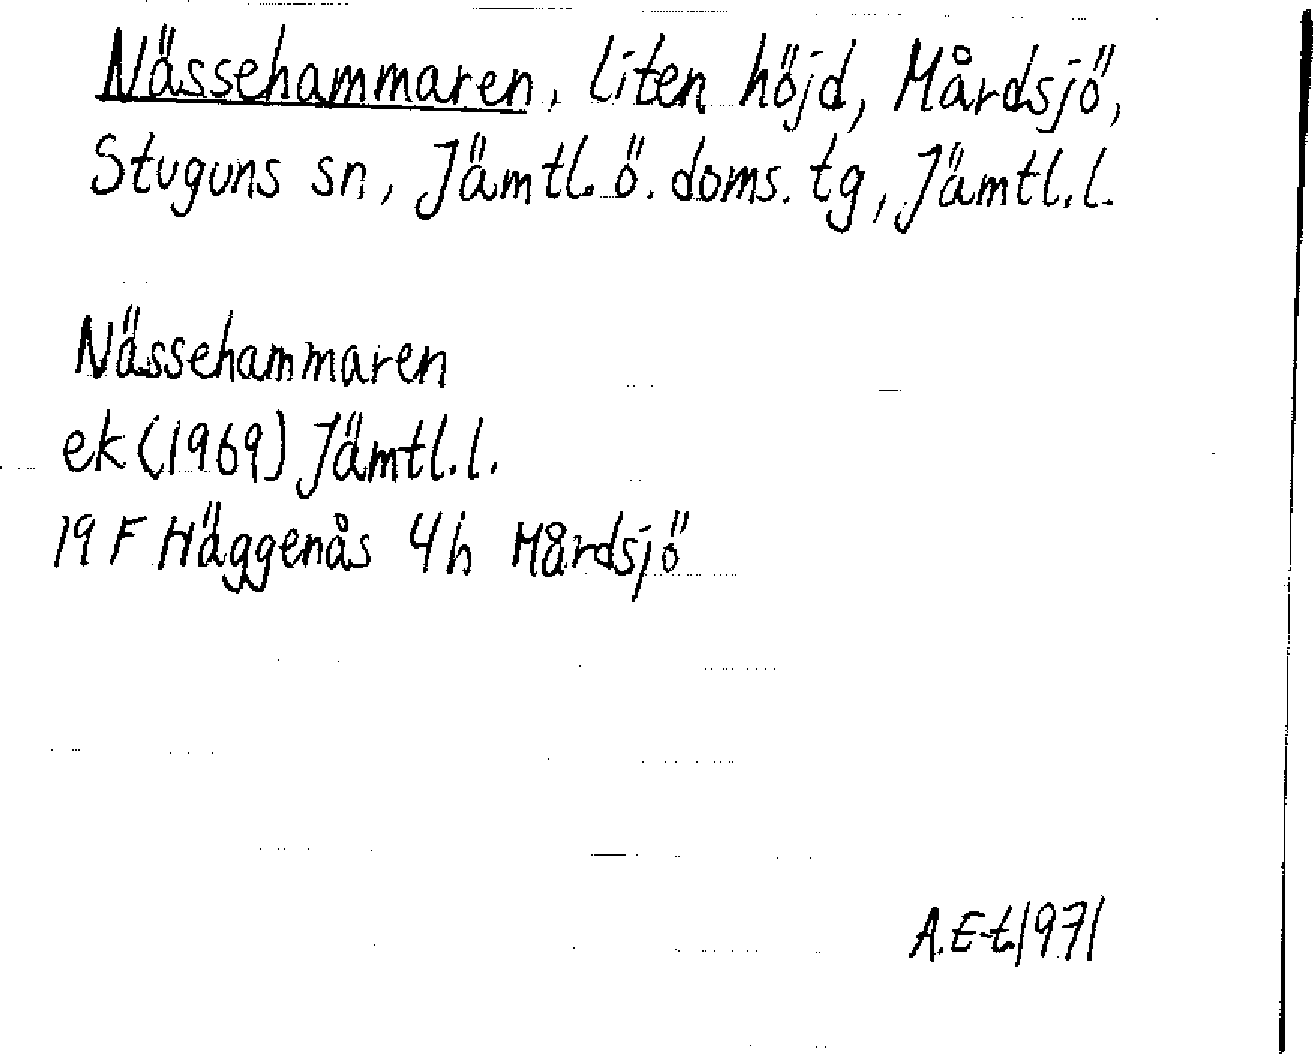 Nässehammaren, liten höjd, Mårdsjö,
Stuguns sn, Jämtl. ö. doms. tg, Jämtl. l.
Nässehammaren
ek (1969) Jämtl. l.
19 F Häggenås 4 h Mårdsjö
A. E-t 1971